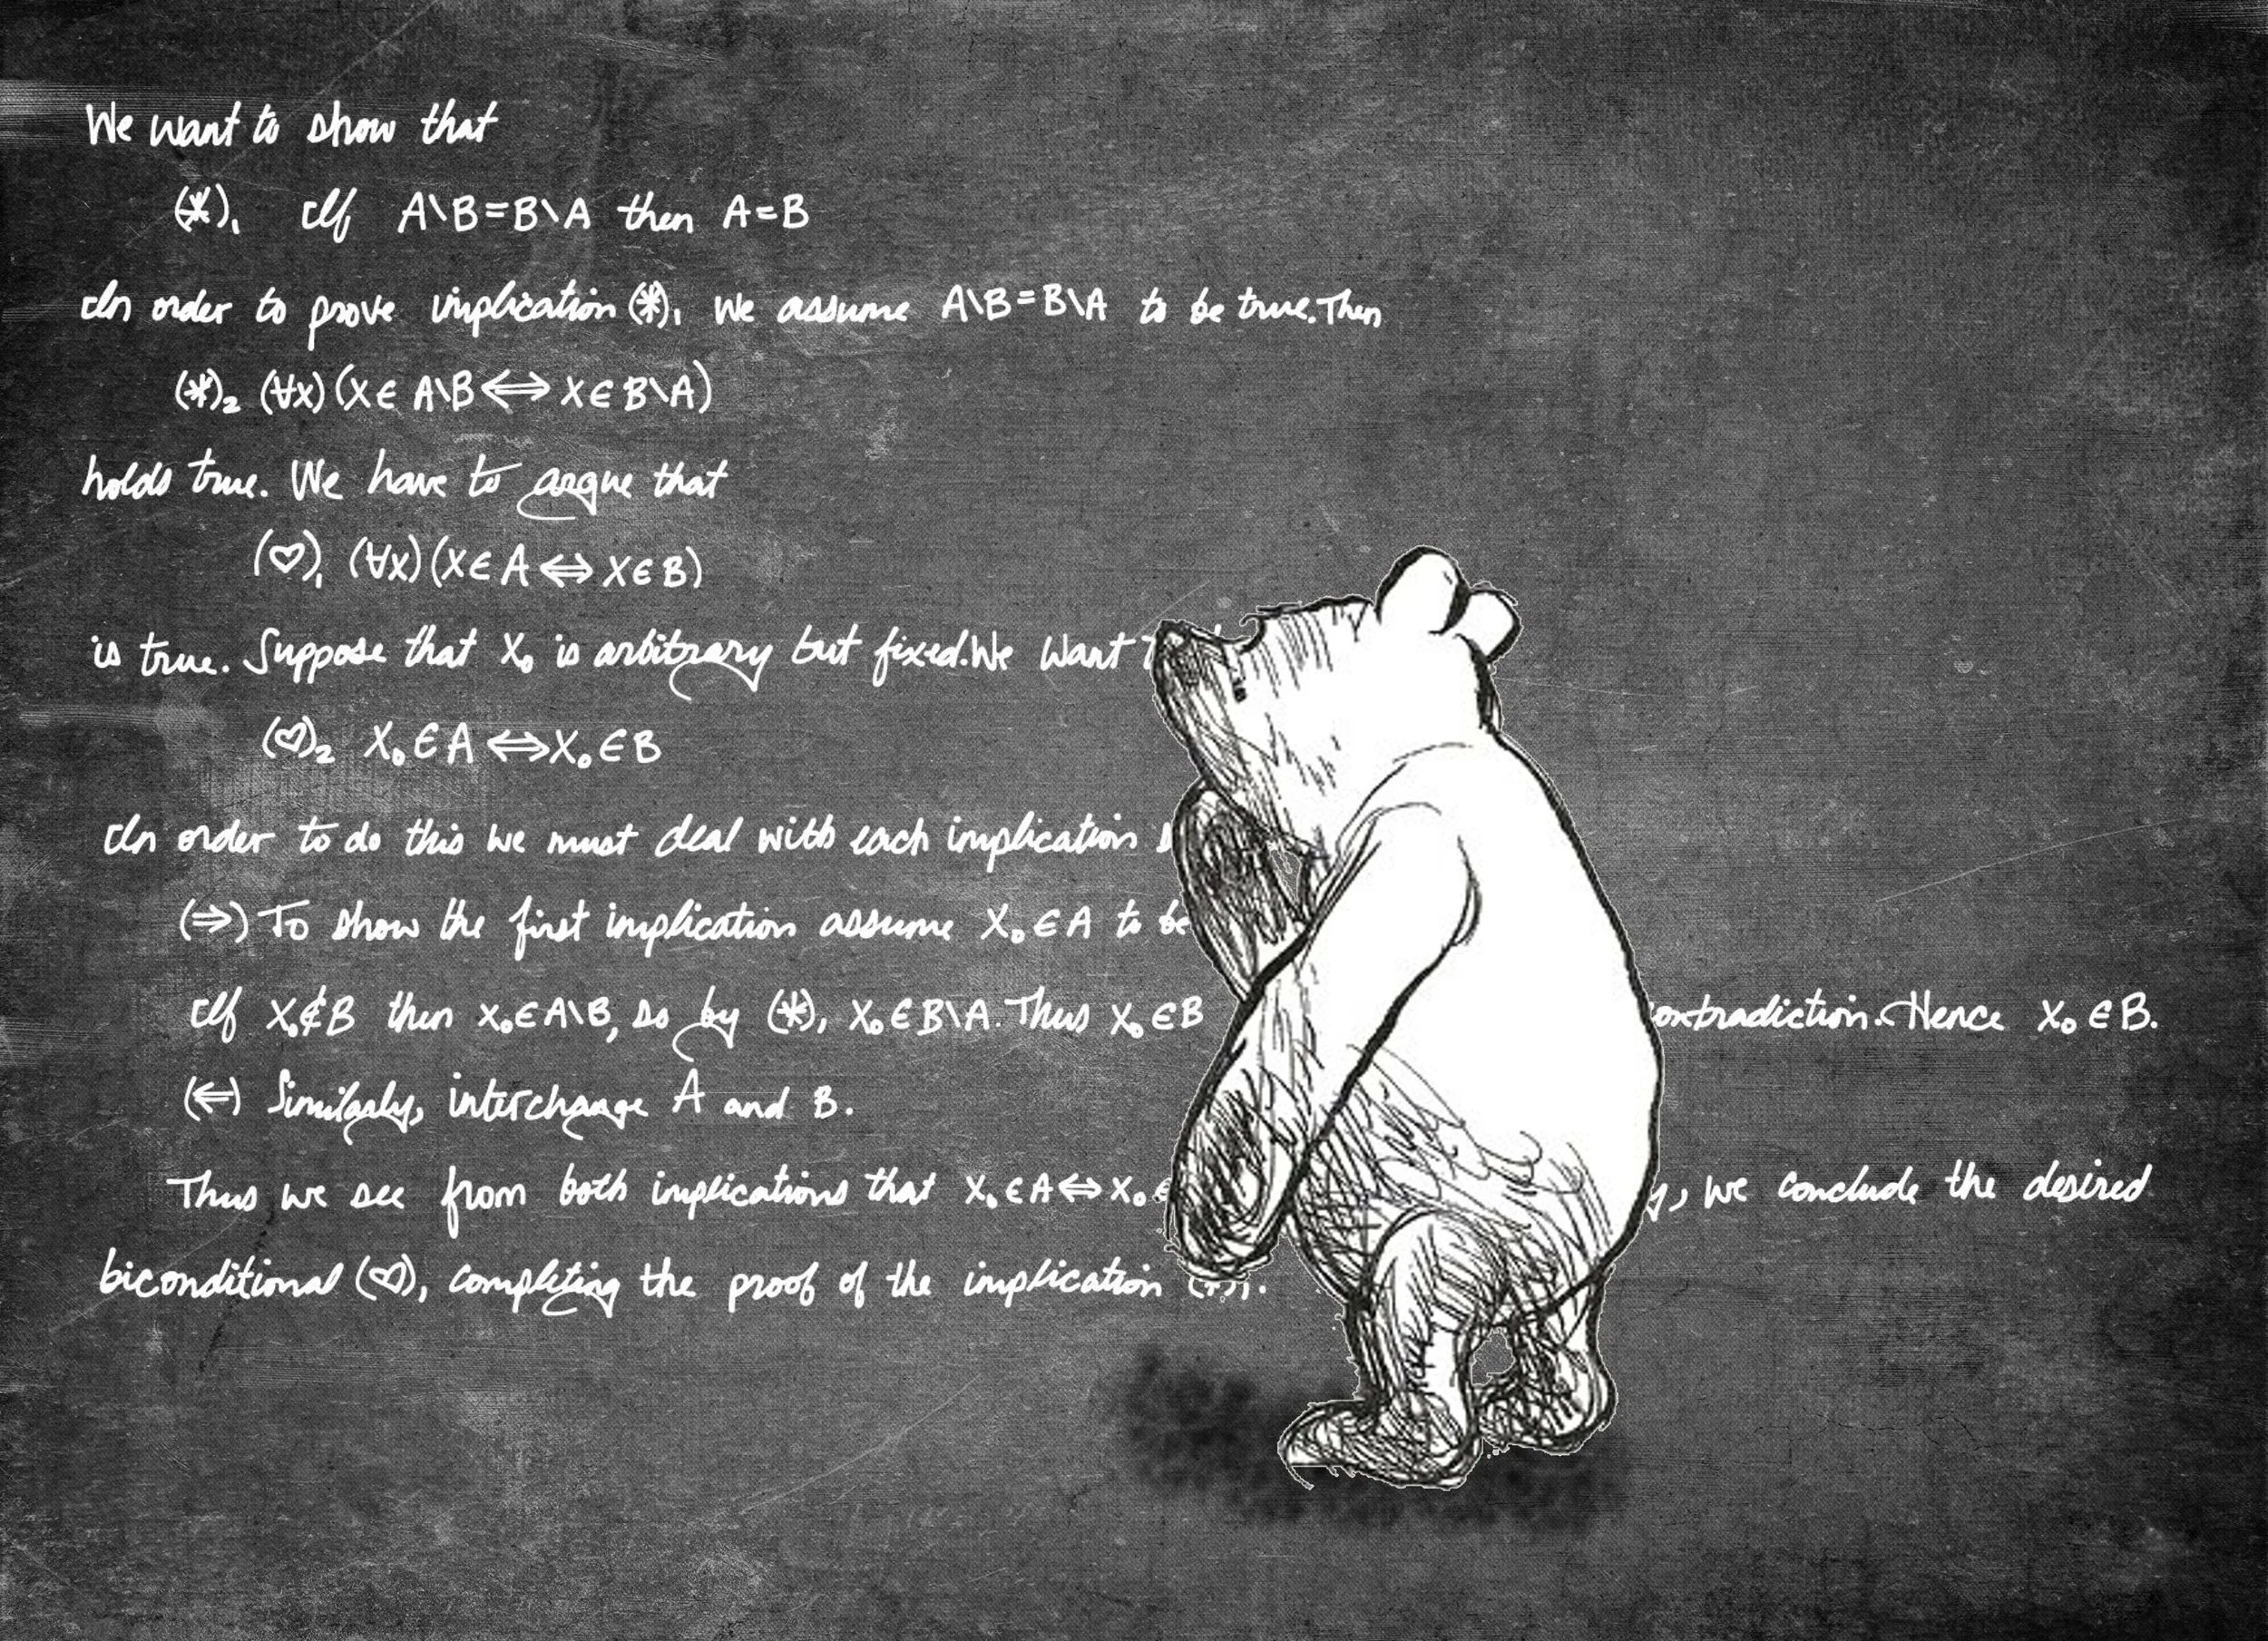 We want to show that
(*)₁ If A\B=B\A then A=B
In order to prove implication (*)₁ we assume A\B=B\A to be true. Then
(*)₂ (∀x)(x∈A\B⟺x∈B\A)
holds true. We have to argue that
(♡)₁ (∀x)(x∈A⟺x∈B)
is true. Suppose that x₀ is arbitrary but fixed. We want
(♡)₂ x₀∈A⟺x₀∈B
In order to do this we must deal with each implication
(⇒) To show the first implication assume x₀∈A to be
If x₀∉B then x₀∈A\B, so by (*), x₀∈B\A. Thus x₀∈B ontradiction. Hence x₀∈B.
(⇐) Similarly, interchange A and B.
Thus we see from both implications that x₀∈A⟺x₀∈ y, we conclude the desired
biconditional (♡), completing the proof of the implication